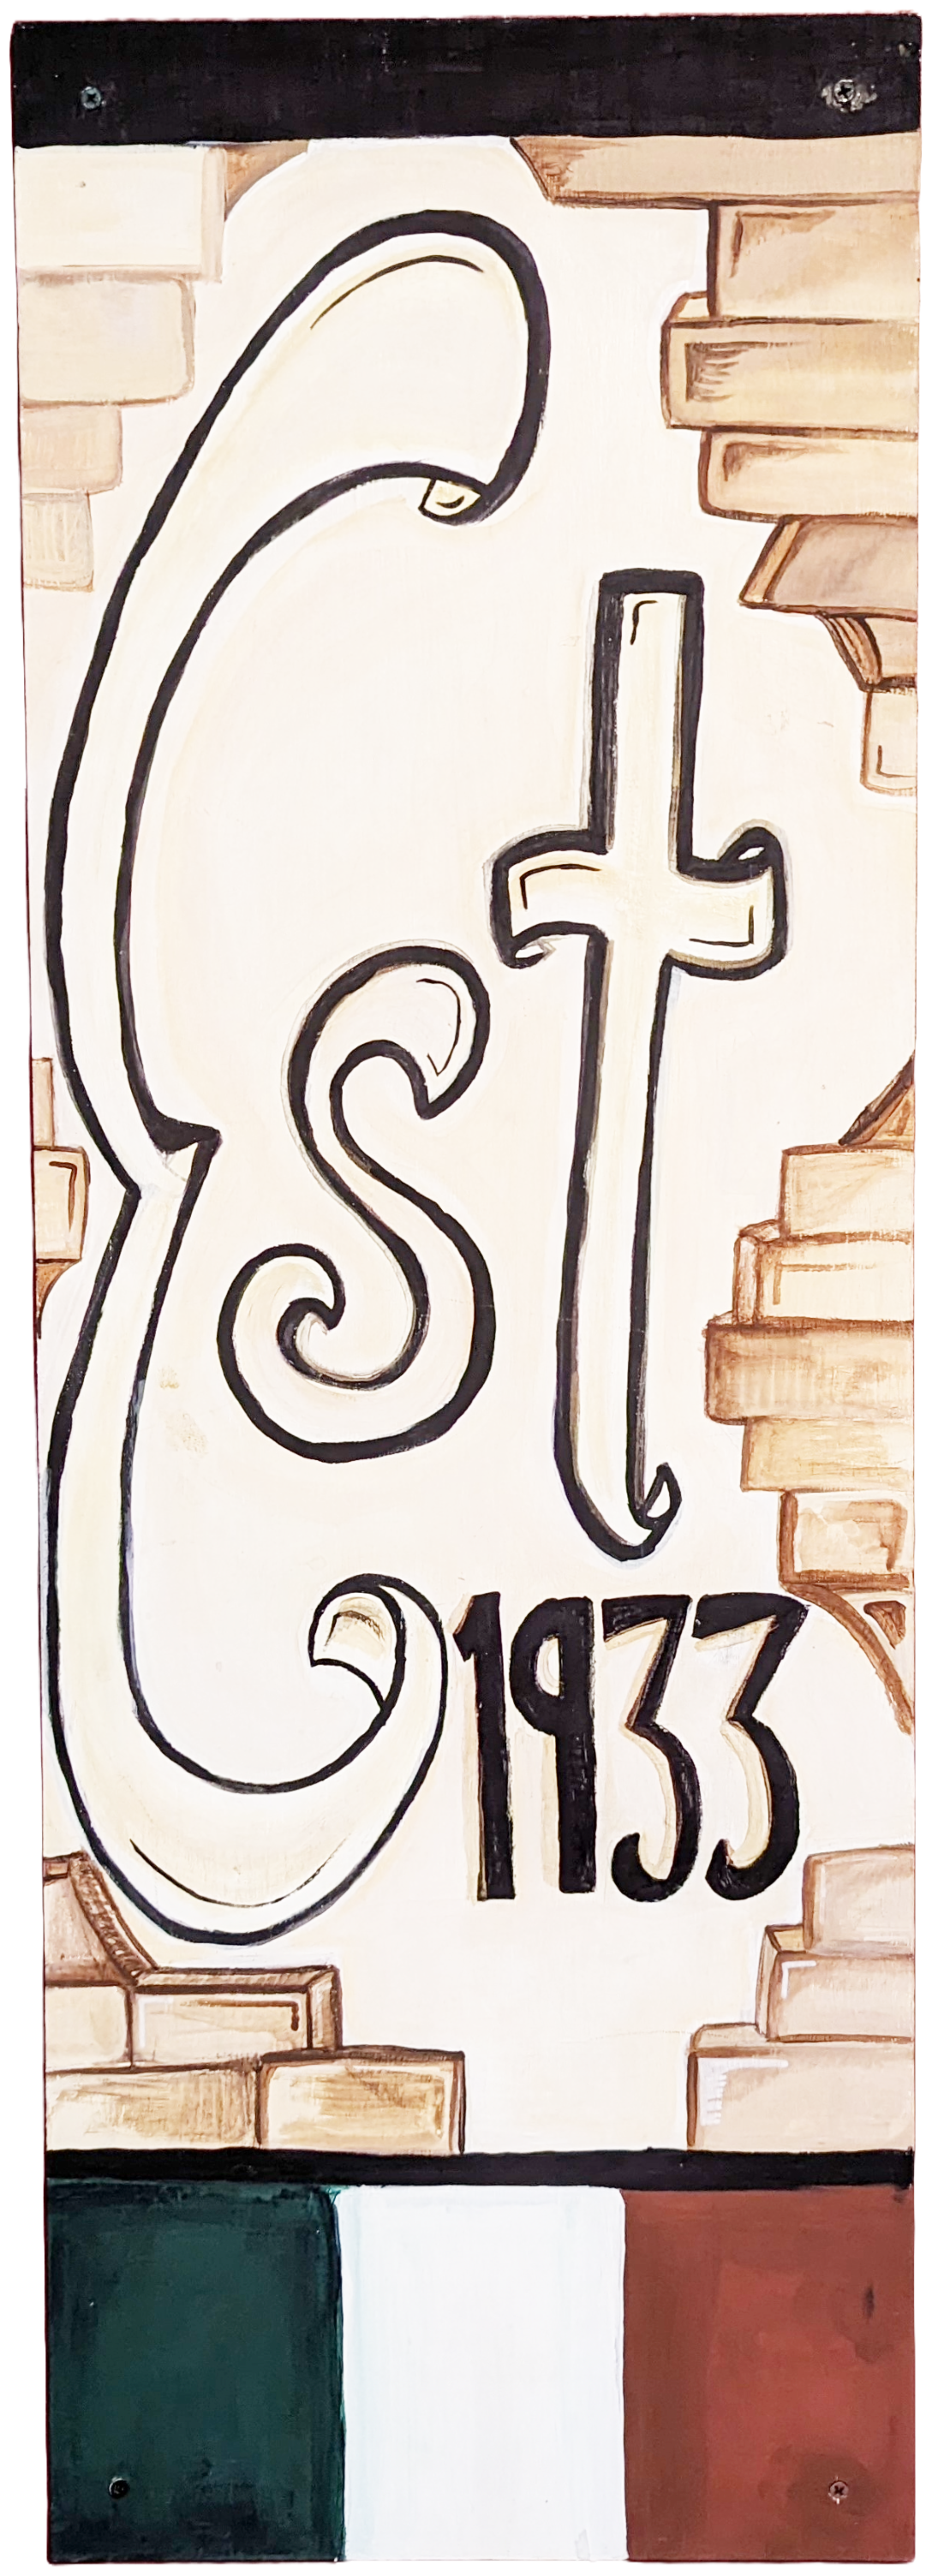 Est
1933